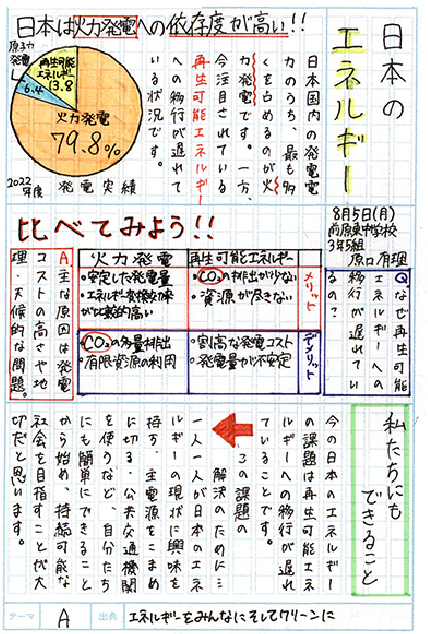 日本のエネルギー
日本は火力発電への依存度が高い!!
原子力
発電
再生可能
エネルギー
13.8
6.4
火力発電
79.8%
2022
年度
発電実績
日本国内の発電電
力のうち、最も多
くを占めるのが火
力発電です。一方、
今注目されている
再生可能エネルギー
への移行が遅れて
いる状況です。
8月5日(月)
前原東中学校
3年5組
原口 侑理
比べてみよう!!
Q.なぜ再生可能
エネルギーへの
移行が遅れてい
るの?
火力発電
再生可能エネルギー
メリット
・安定した発電量
・エネルギー変換効率
が比較的高い
・CO₂の排出が少ない
・資源が尽きない
デメリット
・CO₂の多量排出
・有限資源の利用
・割高な発電コスト
・発電量が不安定
A.主な原因は発電
コストの高さや地
理・天候的な問題。
私たちにも
できること
今の日本のエネルギー
の課題は再生可能エネ
ルギーへの移行が遅れ
ていることです。
この課題の
解決のために…
一人一人が日本のエネ
ルギーの現状に興味を
持ち、主電源をこまめ
に切る・公共交通機関
を使うなど、自分たち
にも簡単にできること
から始め、持続可能な
社会を目指すことが大
切だと思います。
テーマ
A
出典
エネルギーをみんなにそしてクリーンに